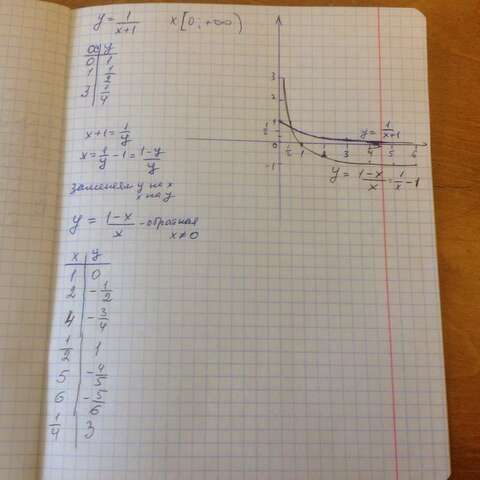 y = 1/(x+1)   x [0; +∞)
x | y
0 | 1
1 | 1/2
3 | 1/4
x+1 = 1/y
x = 1/y - 1 = (1-y)/y
заменяем y на x
x на y
y = (1-x)/x - обратная
x ≠ 0
x | y
1 | 0
2 | -1/2
4 | -3/4
1/2 | 1
5 | -4/5
6 | -5/6
1/4 | 3
3
2
1
1/2
0
-1
1/2 1 2 3 4 5 6
y = 1/(x+1)
y = (1-x)/x = 1/x - 1